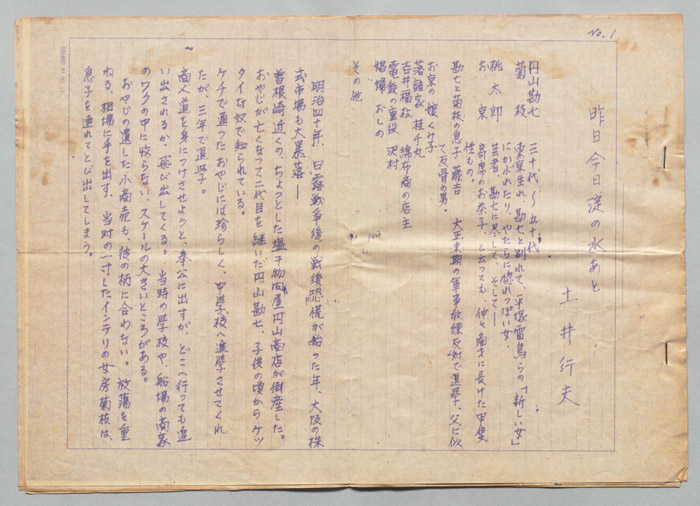 No. 1
昨日今日淀の水あと
土井行夫
円山勘七 三十代〜五十代
菊枝 東京生れ、勘七と別れて、平塚雷鳥らの「新しい女」
にかぶれたり、やたらに惚れっぽい女
桃太郎 芸者、勘七に尽して、そして――
お京 寄席のお茶子、と云っても、仲々商才に長けた甲斐
性もの。
勘七と菊枝の息子 藤吉 大正末期の軍事教練反対で退学、父に似
て反骨の男。
お京の娘 くみ子
落語家 桂千丸
吉井福松 綿布商の店主
電鉄の重役 沢村
娼婦 おしの
その他
明治四十年、日露戦争後の戦後恐慌が始った年、大阪の株
式市場も大暴落――
曽根崎近くの、ちょっとした塩干物問屋円山商店が倒産した。
おやじが亡くなって二代目を継いだ円山勘七、子供の頃からケッ
タイな奴で知られている。
ケチで通ったおやじには珍らしく、中学校へ進学させてくれ
たが、三年で退学。
商人道を身につけさせようと、奉公に出すが、どこへ行っても追
い出されるか、飛び出してくる。当時の学校や、船場の商家
のワクの中に收らない、スケールの大きいところがある。
おやじの遺した小商売も、彼の柄に合わない。放蕩を重
ねる、相場に手を出す、当時の一寸したインテリの女房菊枝は、
息子を連れてとび出してしまう。